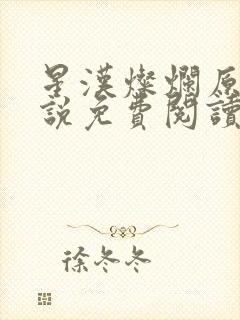 星漢燦爛原
說免費閱讀
徐冬冬